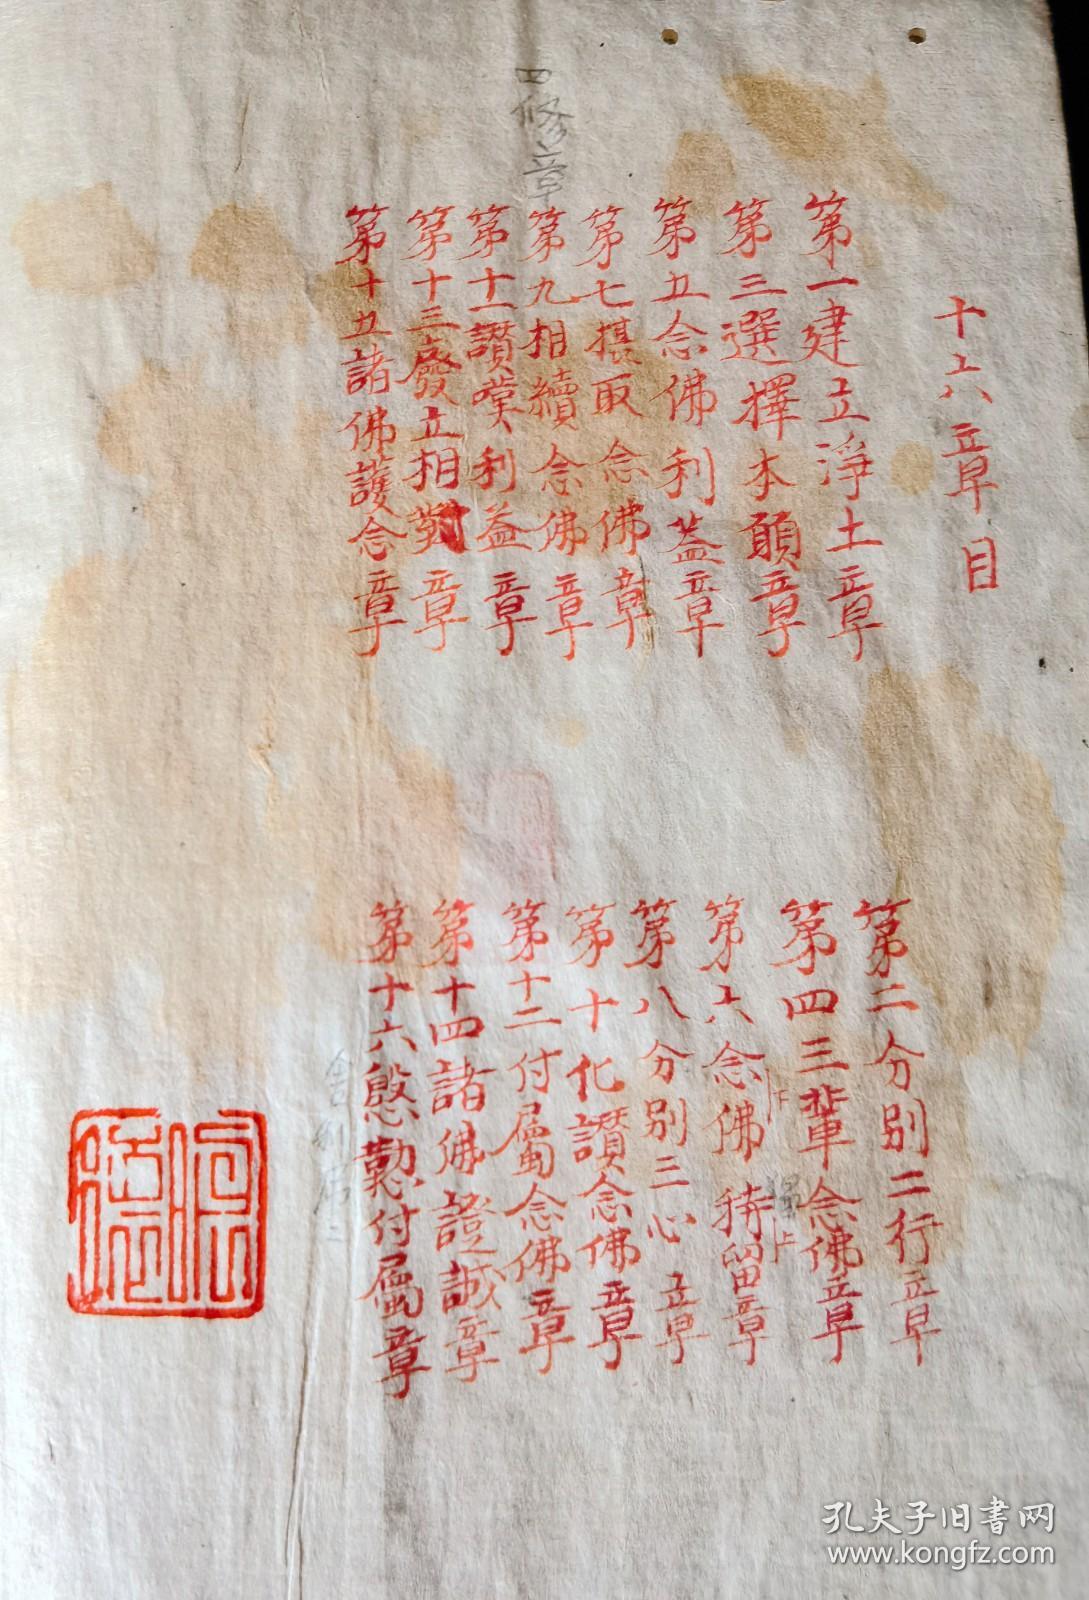 十六章目
第一建立淨土章
第二分別二行章
第三選擇本願章
第四三輩念佛章
第五念佛利益章
第六念佛特留章
第七摂取念佛章
第八分別三心章
第九相續念佛章
第十化讃念佛章
第十一讃嘆利益章
第十二付屬念佛章
第十三廢立相對章
第十四諸佛證誠章
第十五諸佛護念章
第十六慇懃付屬章
四修章
下
上
孔夫子旧書网
www.kongfz.com